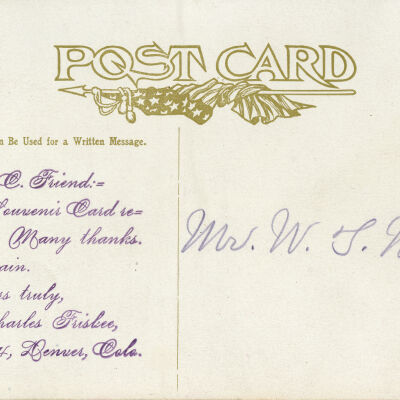 POST CARD
n Be Used for a Written Message.
C. Friend:=
ouvenir Card re=
Many thanks.
ain.
s truly,
harles Frisbee,
4, Denver, Colo.
Mr. W. S.